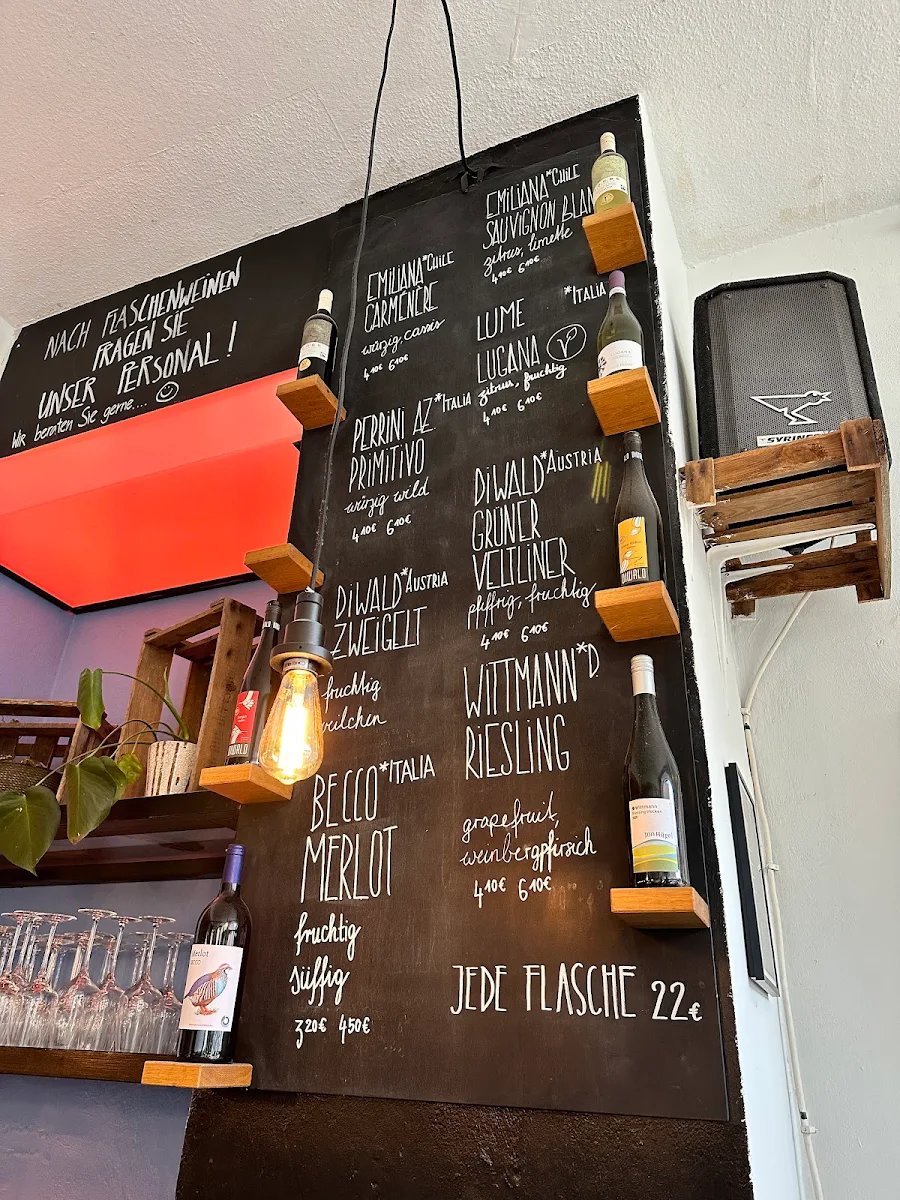 NACH FLASCHENWEINEN
FRAGEN SIE
UNSER PERSONAL!
Wir beraten Sie gerne....
EMILIANA *CHILE
CARMENERE
würzig cassis
4 10€ 6 10€
PERRINI AZ. *ITALIA
PRIMITIVO
würzig wild
4 10€ 6 10€
DIWALD *AUSTRIA
ZWEIGELT
fruchtig
veilchen
BECCO *ITALIA
MERLOT
fruchtig
süffig
3 20€ 4 50€
EMILIANA *CHILE
SAUVIGNON BLAN
zitrus, limette
4 10€ 6 10€
LUME *ITALIA
LUGANA V
zitrus, fruchtig
4 10€ 6 10€
DIWALD *AUSTRIA
GRÜNER
VELTLINER
pfiffig, fruchtig
4 10€ 6 10€
WITTMANN *D.
RIESLING
grapefruit,
weinbergpfirsich
4 10€ 6 10€
JEDE FLASCHE 22€
Merlot
BECCO
DIWALD
Wittmann